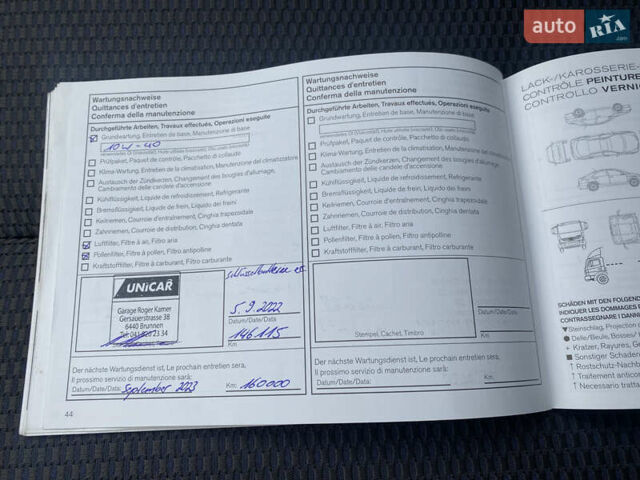 auto RIA
.com
Wartungsnachweise
Quittances d'entretien
Conferma della manutenzione
Durchgeführte Arbeiten, Travaux effectués, Operazioni eseguite
Grundwartung, Entretien de base, Manutenzione di base
10W-40
Prüfpaket, Paquet de contrôle, Pacchetto di collaudo
Klima-Wartung, Entretien de la climatisation, Manutenzione del climatizzatore
Austausch der Zündkerzen, Changement des bougies d'allumage,
Cambiamento delle candele d'accensione
Kühlflüssigkeit, Liquide de refroidissement, Refrigerante
Bremsflüssigkeit, Liquide de frein, Liquido dei freni
Keilriemen, Courroie d'entraînement, Cinghia trapezoidale
Zahnriemen, Courroie de distribution, Cinghia dentata
Luftfilter, Filtre à air, Filtro aria
Pollenfilter, Filtre à pollen, Filtro antipolline
Kraftstofffilter, Filtre à carburant, Filtro carburante
UNICAR
Garage Roger Kamer
Gersauerstrasse 38
6440 Brunnen
5.9.2022
Datum/Date/Data
146115
Km
Der nächste Wartungsdienst ist, Le prochain entretien sera,
Il prossimo servizio di manutenzione sarà:
Datum/Date/Data: September 2023 Km: 160000
44
Wartungsnachweise
Quittances d'entretien
Conferma della manutenzione
Durchgeführte Arbeiten, Travaux effectués, Operazioni eseguite
Grundwartung, Entretien de base, Manutenzione di base
Prüfpaket, Paquet de contrôle, Pacchetto di collaudo
Klima-Wartung, Entretien de la climatisation, Manutenzione del climatizzatore
Austausch der Zündkerzen, Changement des bougies d'allumage,
Cambiamento delle candele d'accensione
Kühlflüssigkeit, Liquide de refroidissement, Refrigerante
Bremsflüssigkeit, Liquide de frein, Liquido dei freni
Keilriemen, Courroie d'entraînement, Cinghia trapezoidale
Zahnriemen, Courroie de distribution, Cinghia dentata
Luftfilter, Filtre à air, Filtro aria
Pollenfilter, Filtre à pollen, Filtro antipolline
Kraftstofffilter, Filtre à carburant, Filtro carburante
Stempel, Cachet, Timbro
Datum/Date/Data
Km
Der nächste Wartungsdienst ist, Le prochain entretien sera,
Il prossimo servizio di manutenzione sarà:
Datum/Date/Data: Km:
LACK-/KAROSSERIE-
CONTRÔLE PEINTURE
CONTROLLO VERNI
SCHÄDEN MIT DEN FOLGEND
INDIQUER LES DOMMAGES
CONTRASSEGNARE I DANNI
Steinschlag, Projection
Delle/Beule, Bosses/
+ Kratzer, Rayures, Gr
Sonstiger Schäden
↑ Rostschutz-Nachb
↑ Traitement anticor
↑ Necessario tratta